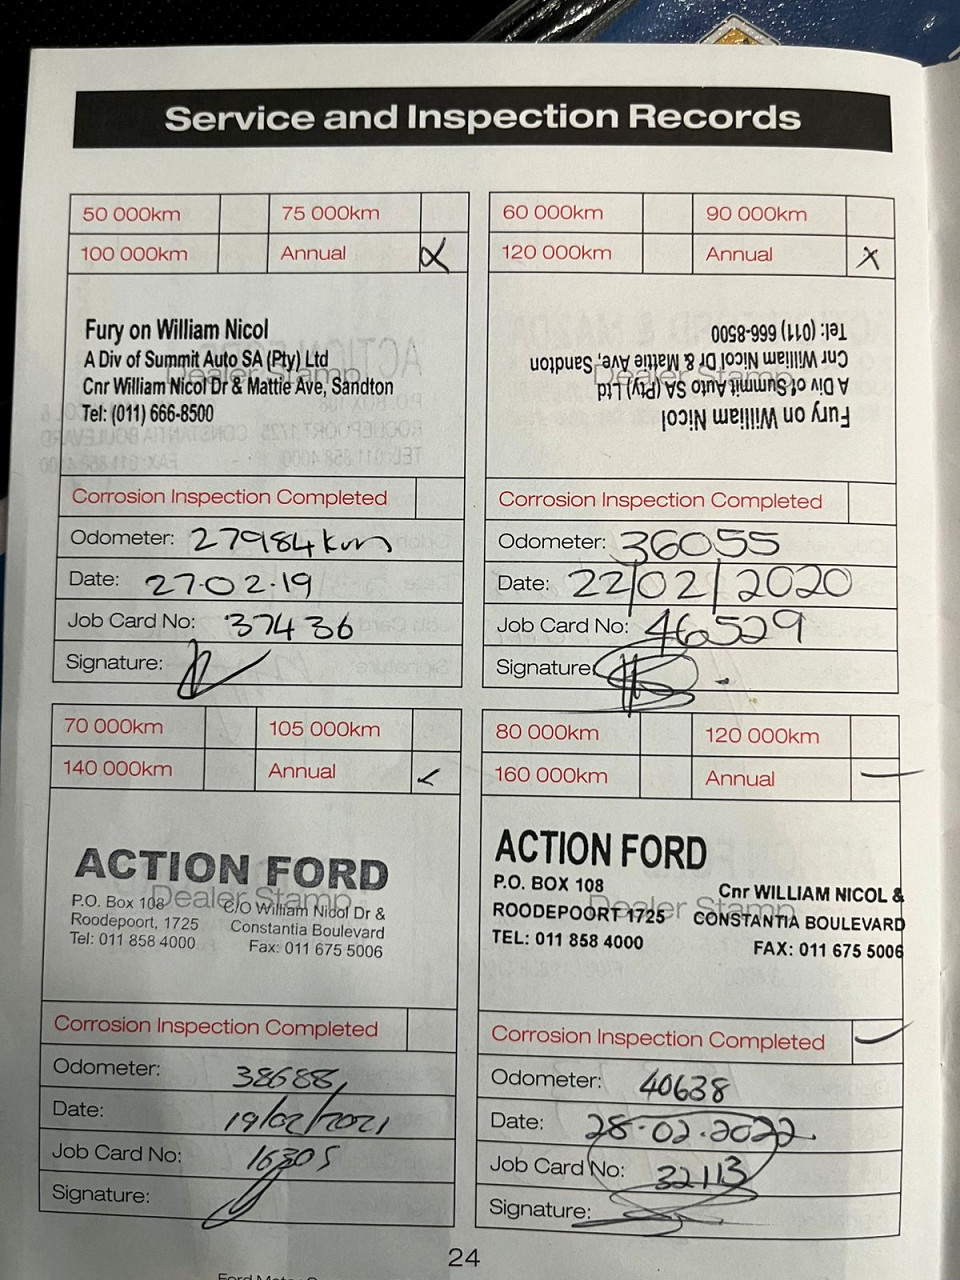 Service and Inspection Records
50 000km 75 000km
100 000km Annual
Fury on William Nicol
A Div of Summit Auto SA (Pty) Ltd
Dealer Stamp
Cnr William Nicol Dr & Mattie Ave, Sandton
Tel: (011) 666-8500
Corrosion Inspection Completed
Odometer: 27984km
Date: 27.02.19
Job Card No: 37436
Signature:
60 000km 90 000km
120 000km Annual
Fury on William Nicol
A Div of Summit Auto SA (Pty) Ltd
Dealer Stamp
Cnr William Nicol Dr & Mattie Ave, Sandton
Tel: (011) 666-8500
Corrosion Inspection Completed
Odometer: 36055
Date: 22/02/2020
Job Card No: 46529
Signature:
70 000km 105 000km
140 000km Annual
ACTION FORD
Dealer Stamp
P.O. Box 108 C/O William Nicol Dr &
Roodepoort, 1725 Constantia Boulevard
Tel: 011 858 4000 Fax: 011 675 5006
Corrosion Inspection Completed
Odometer: 38688
Date: 19/02/2021
Job Card No: 16305
Signature:
80 000km 120 000km
160 000km Annual
ACTION FORD
P.O. BOX 108 Cnr WILLIAM NICOL &
Dealer Stamp
ROODEPOORT 1725 CONSTANTIA BOULEVARD
TEL: 011 858 4000 FAX: 011 675 5006
Corrosion Inspection Completed
Odometer: 40638
Date: 28.02.2022.
Job Card No: 32113
Signature:
24